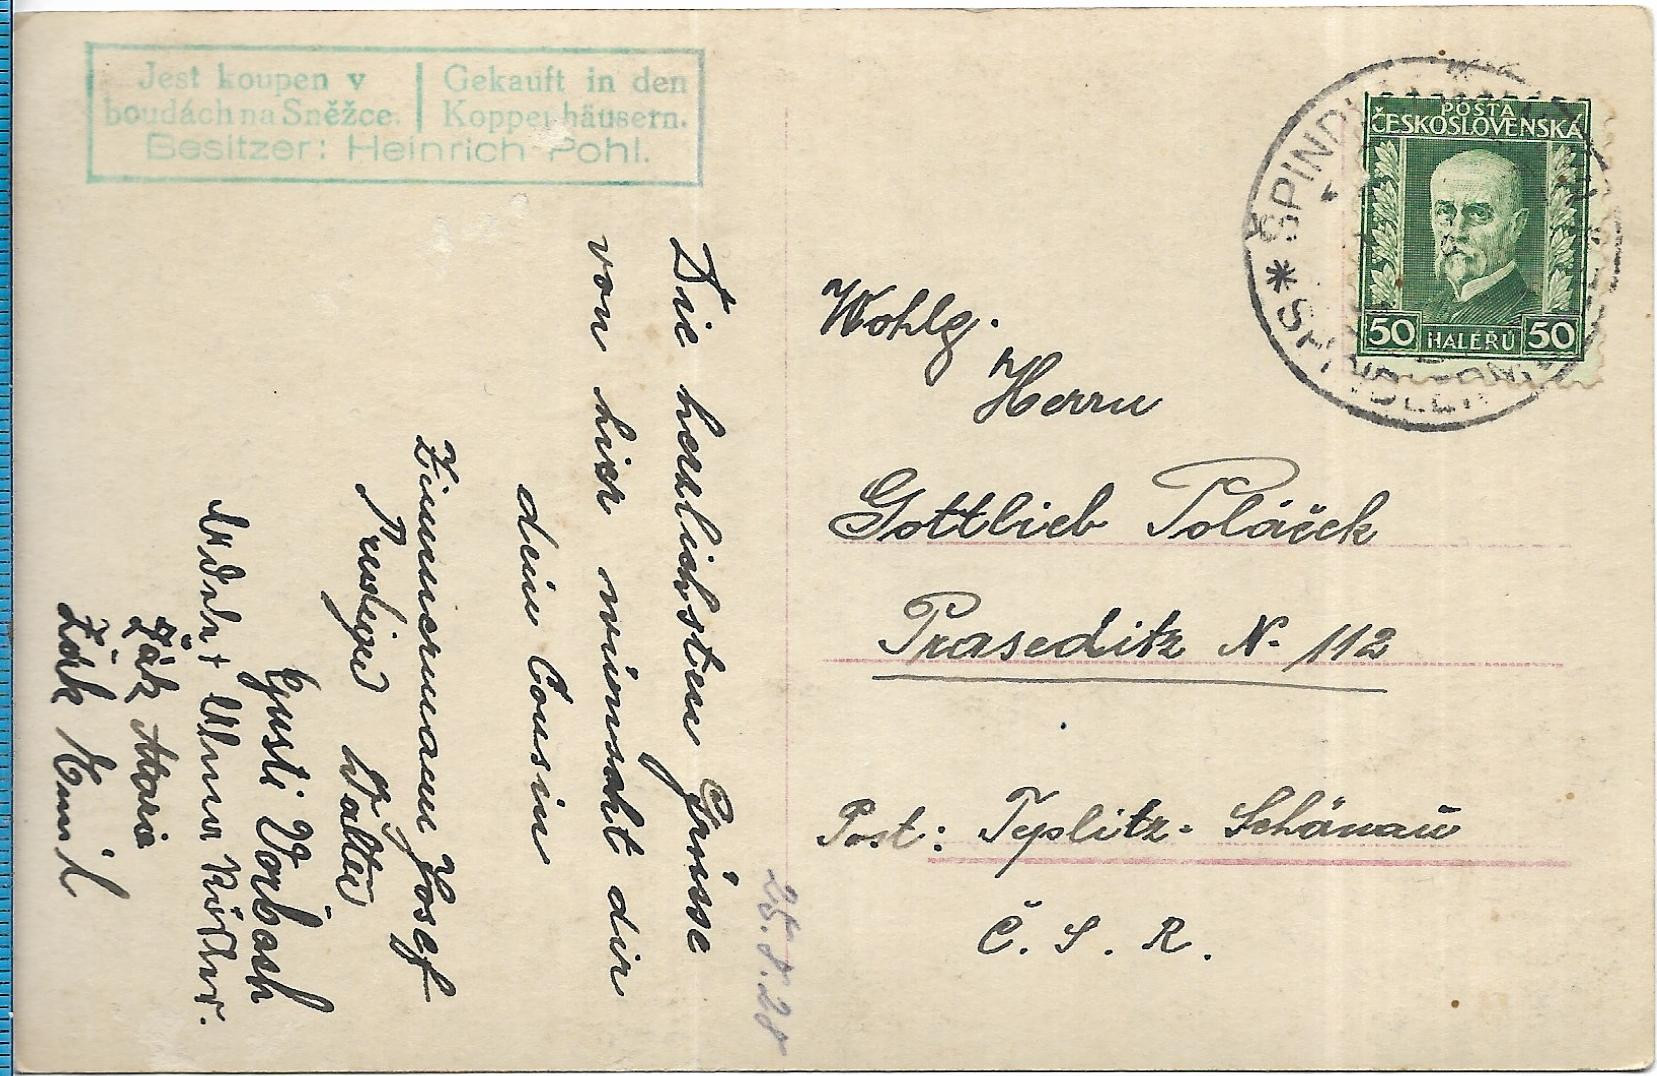 Jest koupen v
boudách na Sněžce.
Gekauft in den
Koppenhäusern.
Besitzer: Heinrich Pohl.
POŠTA
ČESKOSLOVENSKÁ
50 HALÉŘŮ 50
Die herzlichsten Grüsse
von hier wünscht dir
dein Cousin
Zimmermann Josef
Walter
Gusti Vorbach
Anna
Žák Maria
Žák Emil
25.8.28
Wohlg.
Herrn
Gottlieb Poláček
Praseditz N. 112
Post: Teplitz-Schönau
Č. S. R.